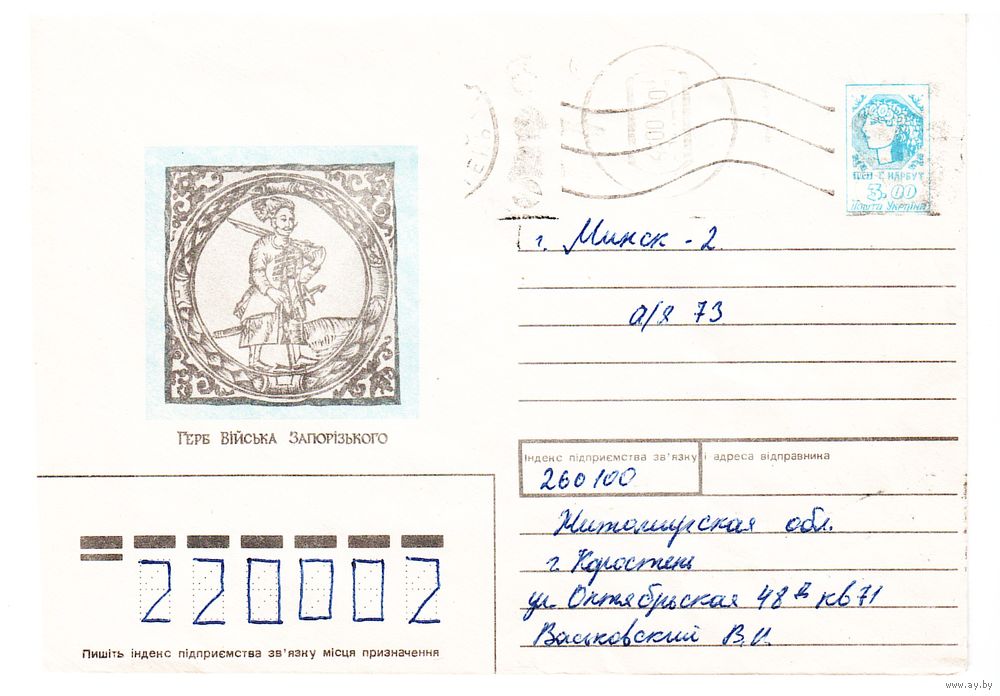 ГСН-Г. НАРБУТ
3.00
Пошта Україна
г. Минск - 2
а/я 73
Герб Війська Запорізького
Індекс підприємства зв'язку і адреса відправника
260100
Житомирская обл.
г. Коростень
ул. Октябрьская 48 кв 71
Васьковский В.И.
220002
Пишіть індекс підприємства зв'язку місця призначення
www.ay.by